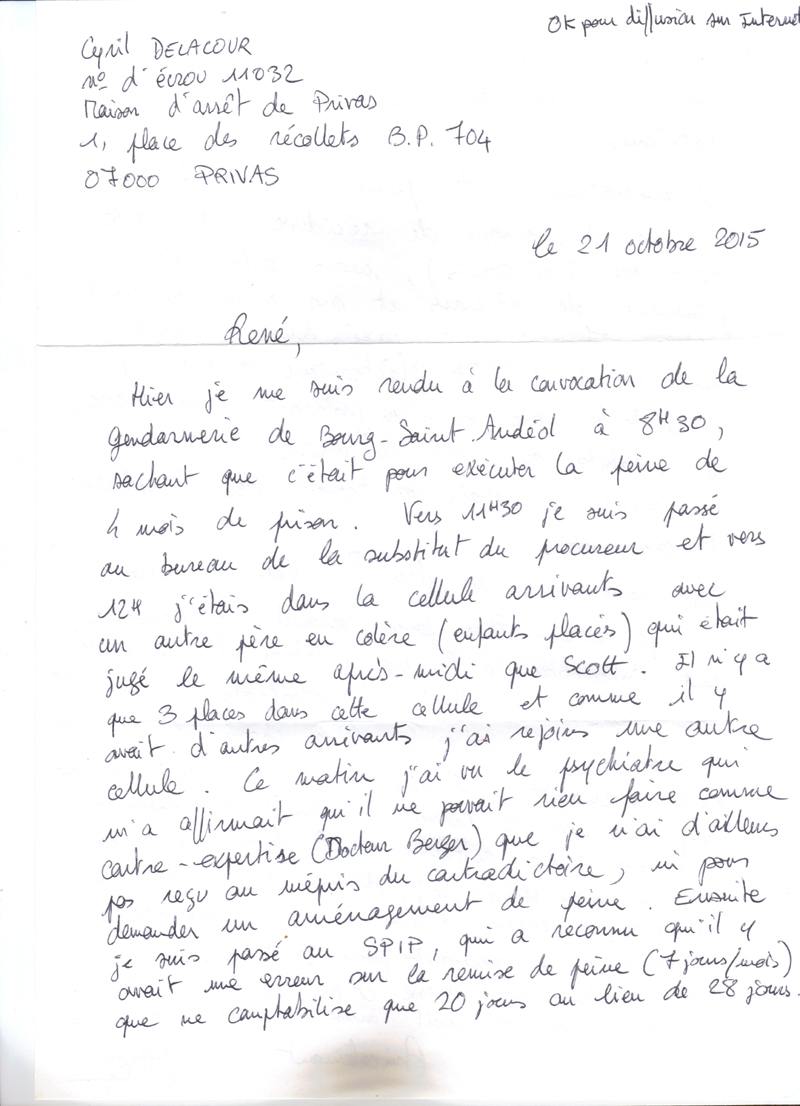 OK pour diffusion sur Internet
Cyril DELACOUR
n° d'écrou 11032
Maison d'arrêt de Privas
1, place des récollets B.P. 704
07000 PRIVAS
le 21 octobre 2015
René,
Hier je me suis rendu à la convocation de la
gendarmerie de Bourg-Saint Andéol à 8H30,
sachant que c'était pour exécuter la peine de
4 mois de prison. Vers 11H30 je suis passé
au bureau de la substitut du procureur et vers
12H j'étais dans la cellule arrivants avec
un autre père en colère (enfants placés) qui était
jugé le même après-midi que Scott. Il n'y a
que 3 places dans cette cellule et comme il y
avait d'autres arrivants j'ai rejoins une autre
cellule. Ce matin j'ai vu le psychiatre qui
m'a affirmait qu'il ne pouvait rien faire comme
contre-expertise (Docteur Berger) que je n'ai d'ailleurs
pas reçu au mépris du contradictoire, ni pour
demander un aménagement de peine. Ensuite
je suis passé au SPIP, qui a reconnu qu'il y
avait une erreur sur la remise de peine (7 jours/mois)
que ne comptabilise que 20 jours au lieu de 28 jours.